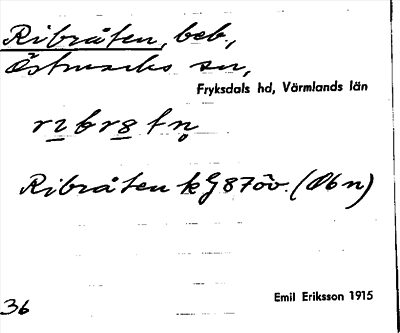 Ribråten, beb.,
Östmarks sn,
Fryksdals hd, Värmlands län
Ribråten kG87öv. (Öbn)
Emil Eriksson 1915
36